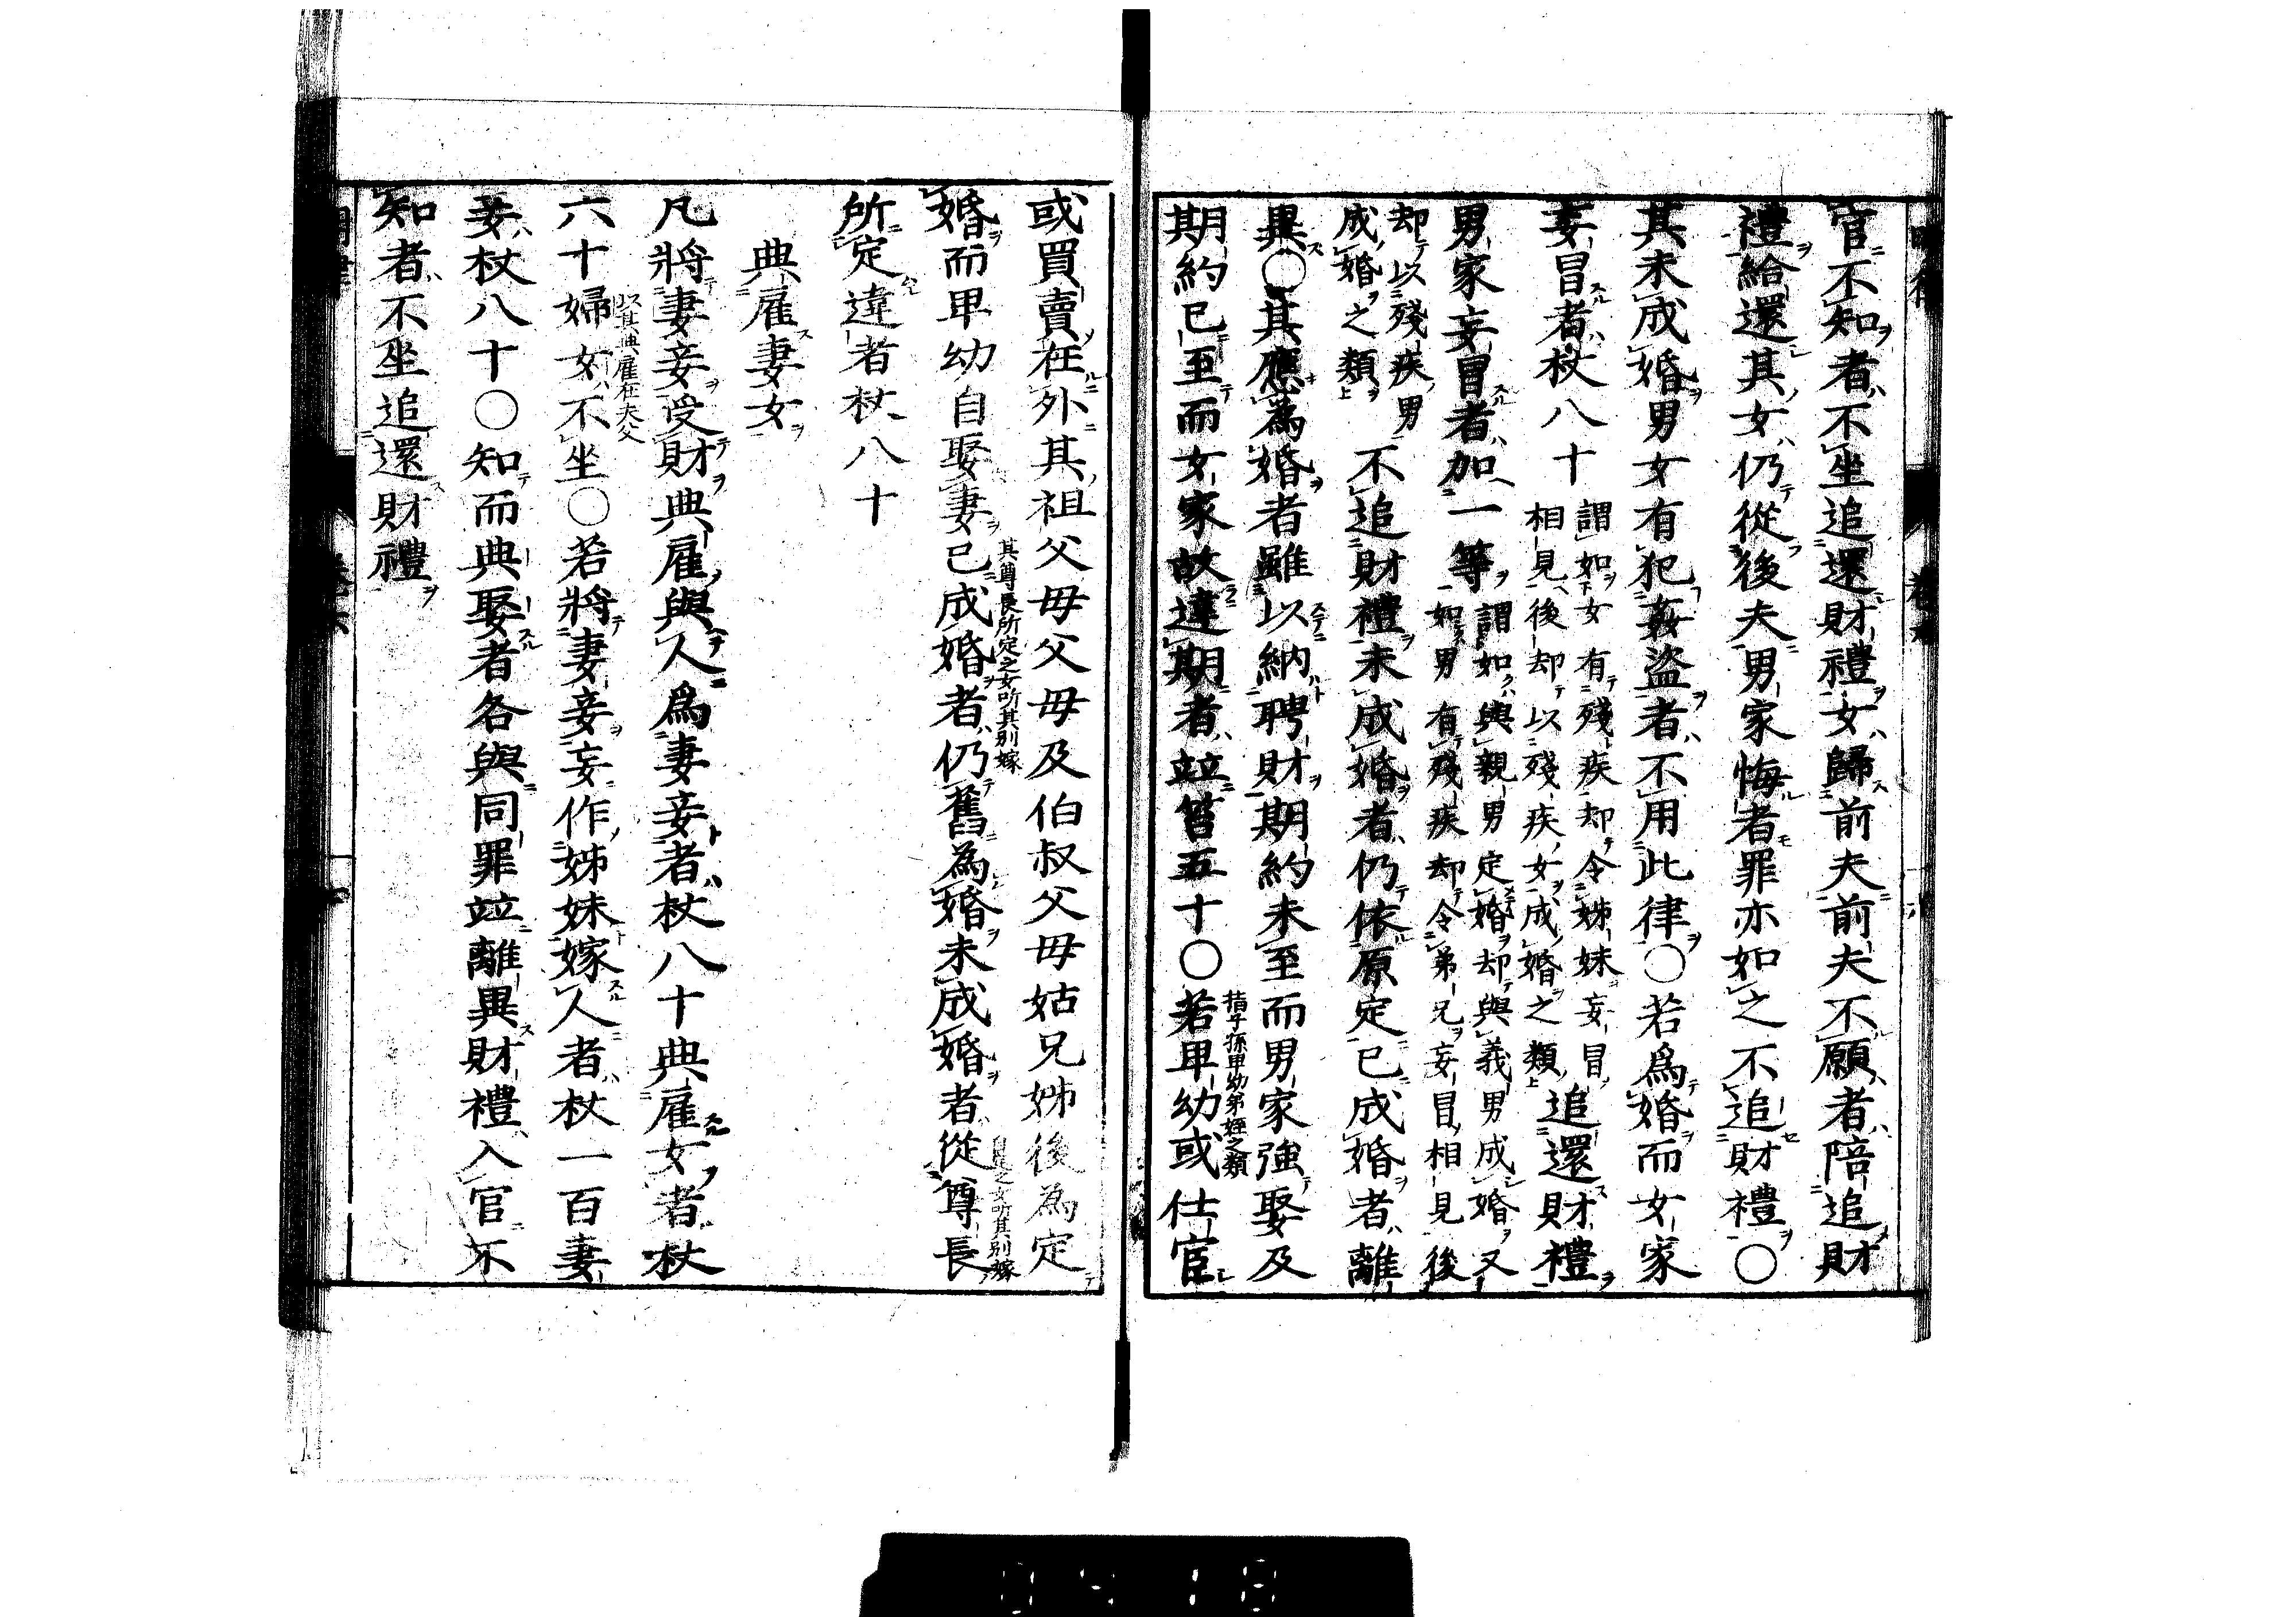 官不知者不坐追還財禮女歸前夫前夫不願者陪追財
禮給還其女仍從後夫男家悔者罪亦如之不追財禮〇
其未成婚男女有犯姦盜者不用此律〇若爲婚而女家
妄冒者杖八十謂如女有殘疾却令姊妹妄冒
相見後却以殘疾女成婚之類追還財禮
男家妄冒者加一等謂如與親男定婚却與義男成婚又
如男有殘疾却令弟兄妄冒相見後
却以殘疾男
成婚之類不追財禮未成婚者仍依原定已成婚者離
異〇其應為婚者雖以納聘財期約未至而男家強娶及
期約已至而女家故違期者竝笞五十〇若卑幼或仕宦
指子孫卑幼弟姪之類
或買賣在外其祖父母父母及伯叔父母姑兄姊後為定
婚而卑幼自娶妻已成婚者仍舊為婚未成婚者從尊長
其尊長所定之女听其別嫁
自定之女听其別嫁
所定違者杖八十
典雇妻女
凡將妻妾受財典雇與人爲妻妾者杖八十典雇女者杖
六十婦女不坐〇若將妻妾妄作姊妹嫁人者杖一百妻
以其典雇在夫父
妾杖八十〇知而典娶者各與同罪竝離異財禮入官不
知者不坐追還財禮